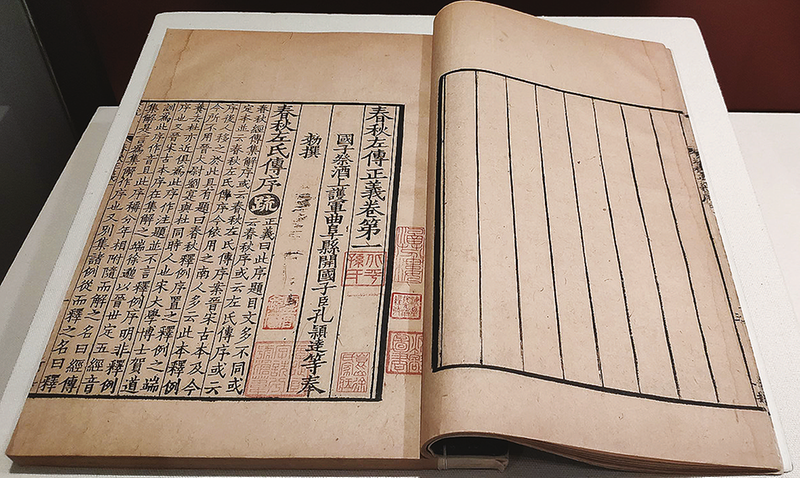 春秋左傳正義卷第一
國子祭酒上護軍曲阜縣開國子臣孔穎達等奉
勑撰
春秋左氏傳序 疏 正義曰此序題目文多不同或
云春秋序或云左氏傳序或云
春秋經傳集解序或云春秋左氏傳序案晉宋古本及今
定本並云春秋左氏傳序今依用之南人多云此本釋例
序後人移之於此且有題曰春秋釋例序置之釋例之端
今所不用晉大尉劉寔與杜同時人也宋大學博士賀道
養去杜亦近俱爲此序作注題並不言釋例序明非釋例
序也又晉宋古本序在集解之端徐邈以晉世定五經音
訓爲此序作音且此序稱分年相附隨而解之名曰經傳
集解是言爲集解作序也又別集諸例從而釋之名曰釋